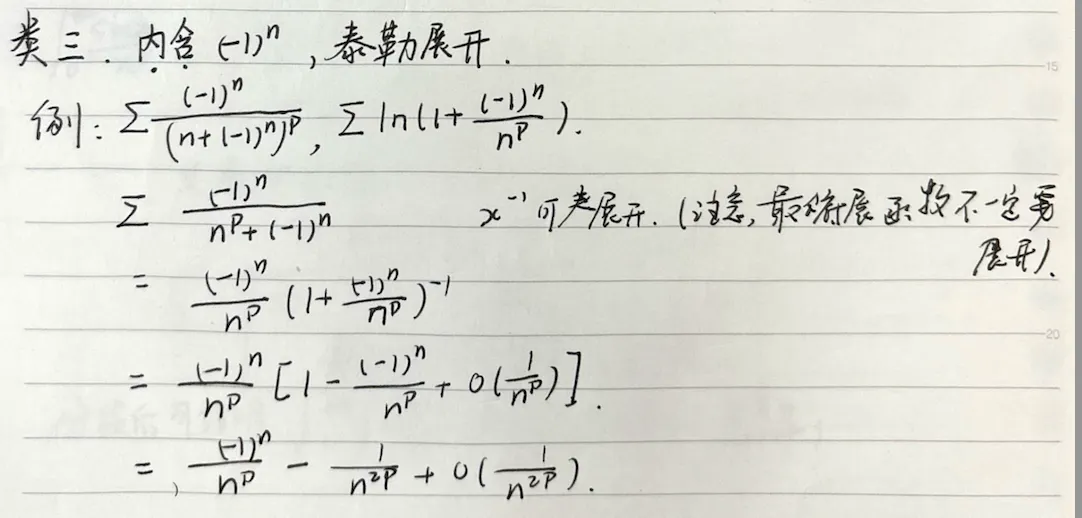 类三. 内含 (-1)^n , 泰勒展开.
例: Σ (-1)^n/(n+(-1)^n)^p , Σ ln(1+ (-1)^n/n^p ).
Σ (-1)^n/(n^p+(-1)^n) x^{-1} 可类展开. (注意, 最 展函数不一定要
展开).
= (-1)^n/n^p (1+ (-1)^n/n^p )^{-1}
= (-1)^n/n^p [1 - (-1)^n/n^p + o(1/n^p)].
= (-1)^n/n^p - 1/n^{2p} + o(1/n^{2p}).
15
20